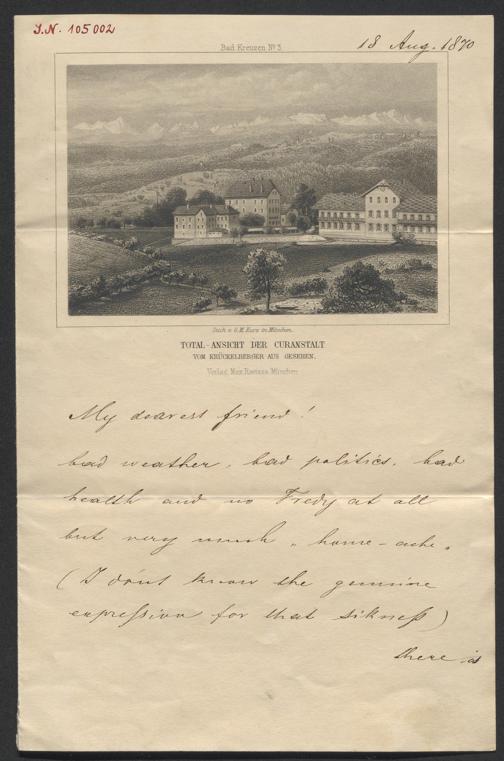 I.N. 105002
Bad Kreuzen № 3.
18 Aug. 1870
Stich v. G. M. Kurz in München.
TOTAL-ANSICHT DER CURANSTALT
VOM KRÜCKELBERGER AUS GESEHEN.
Verlag Max Ravizza München
My dearest friend!
bad weather, bad politics, bad
health and no Fredy at all
but very much „home-ache„
(I do'nt know the genuine
expression for that sikness)
there is